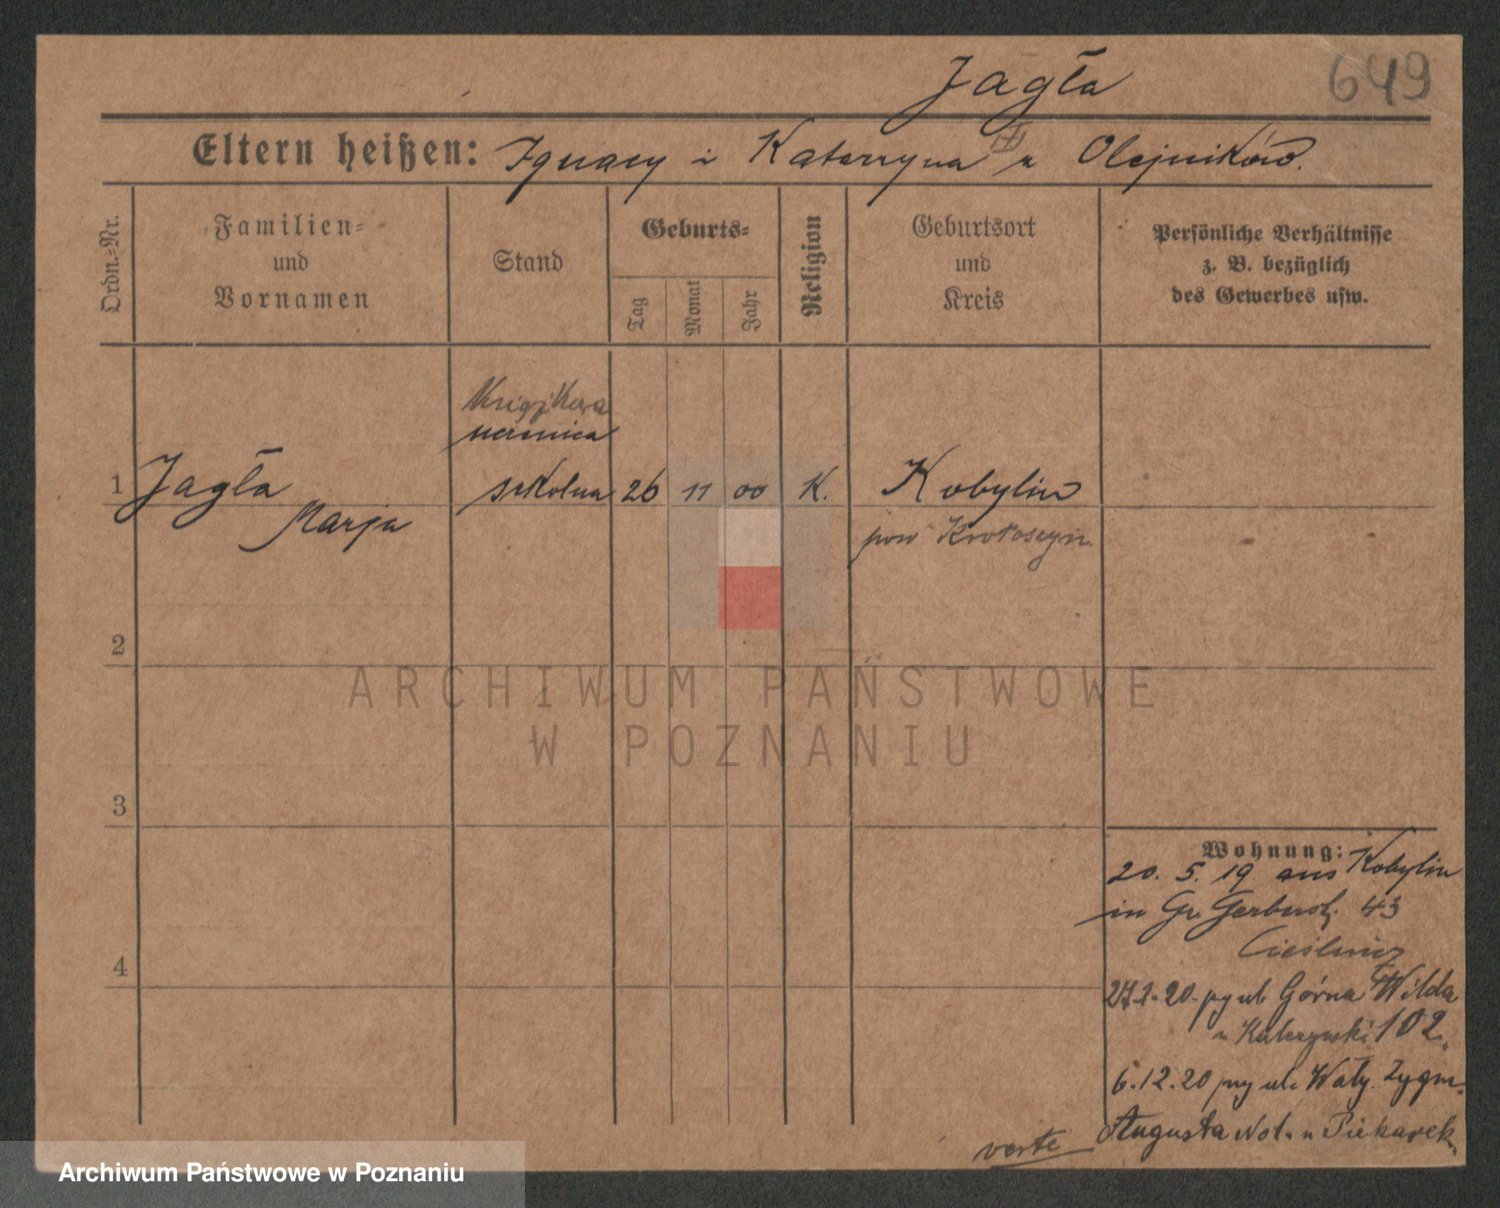 Jagła
649
Eltern heißen: Ignacy i Katarzyna z Olejników.
Ordn.-Nr.
Familien-
und
Vornamen
Stand
Geburts-
Tag
Monat
Jahr
Religion
Geburtsort
und
Kreis
Persönliche Verhältnisse
z. B. bezüglich
des Gewerbes usw.
Książkowa
uczenica
1 Jagła szkolna 26 11 00 K. Kobylin
Marja pow Krotoszyn.
2
3
4
Wohnung:
20. 5. 19 aus Kobylin
in Gr. Gerberst. 43
20. przy ul Górna Wilda
102.
6.12.20 przy ul. Wały Zygm.
Augusta No 1. u Piekarek
verte
ARCHIWUM PAŃSTWOWE
W POZNANIU
Archiwum Państwowe w Poznaniu